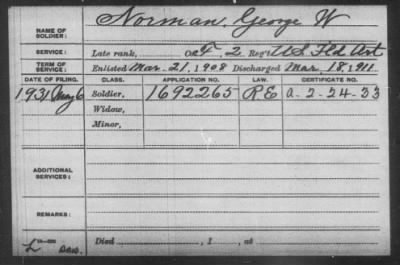 NAME OF SOLDIER: Norman, George W
SERVICE: Late rank, 2 Reg't U S Fld Art
TERM OF SERVICE: Enlisted Mar. 21, 1908 Discharged Mar. 18, 1911.
DATE OF FILING. CLASS. APPLICATION NO. LAW. CERTIFICATE NO.
1931 May 6 Soldier, 1692265 R E a-2-24-33
Widow,
Minor,
ADDITIONAL SERVICES:
REMARKS:
Died , 1 , at